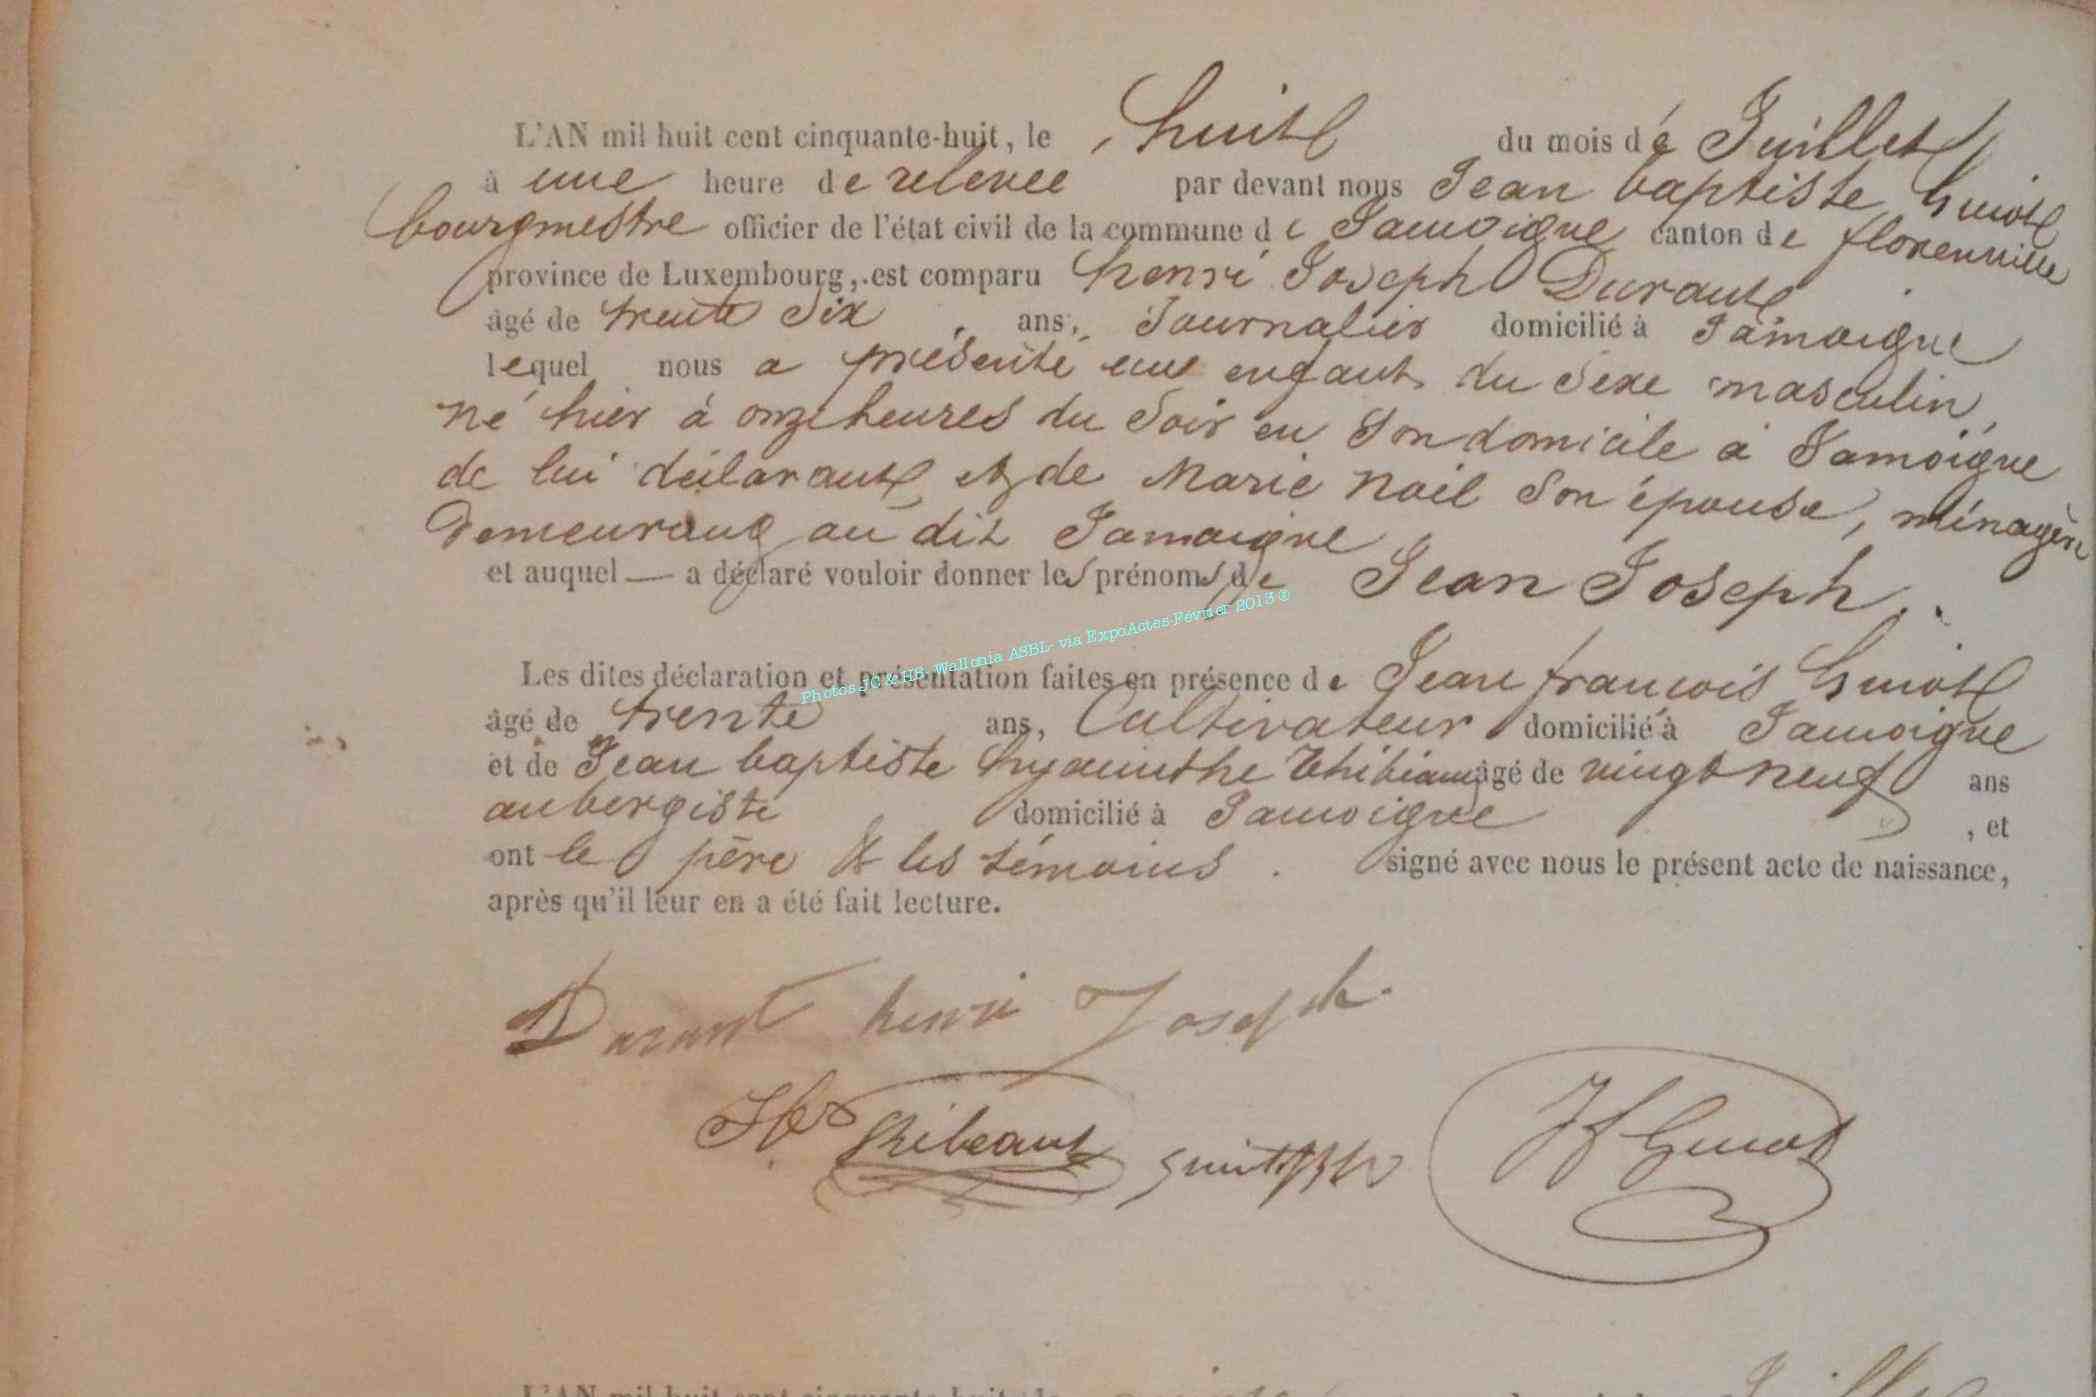 L'AN mil huit cent cinquante-huit, le huit du mois de Juillet
à une heure de relevée par devant nous Jean baptiste Guiot
bourgmestre officier de l'état civil de la commune de Jamoigne canton de florenville
province de Luxembourg, est comparu henri Joseph Durant
âgé de trente six ans, Journalier domicilié à Jamoigne
lequel nous a présenté un enfant du sexe masculin,
né hier à onze heures du soir en son domicile à Jamoigne
de lui déclarant et de Marie Noël son épouse, ménagère
Demeurant au dit Jamoigne
et auquel — a déclaré vouloir donner les prénoms de Jean Joseph.
Photos JC & HS. Wallonia ASBL- via ExpoActes-Février 2013 ®
Les dites déclaration et présentation faites en présence de Jean françois Guiot
âgé de trente ans, Cultivateur domicilié à Jamoigne
et de Jean baptiste hyacinthe Thibeaux âgé de vingt neuf ans
aubergiste domicilié à Jamoigne , et
ont le père & les témoins. signé avec nous le présent acte de naissance,
après qu'il leur en a été fait lecture.
Durant henri Joseph
Thibeaux
JF Guiot
L'AN mil huit cent cinquante-huit, le